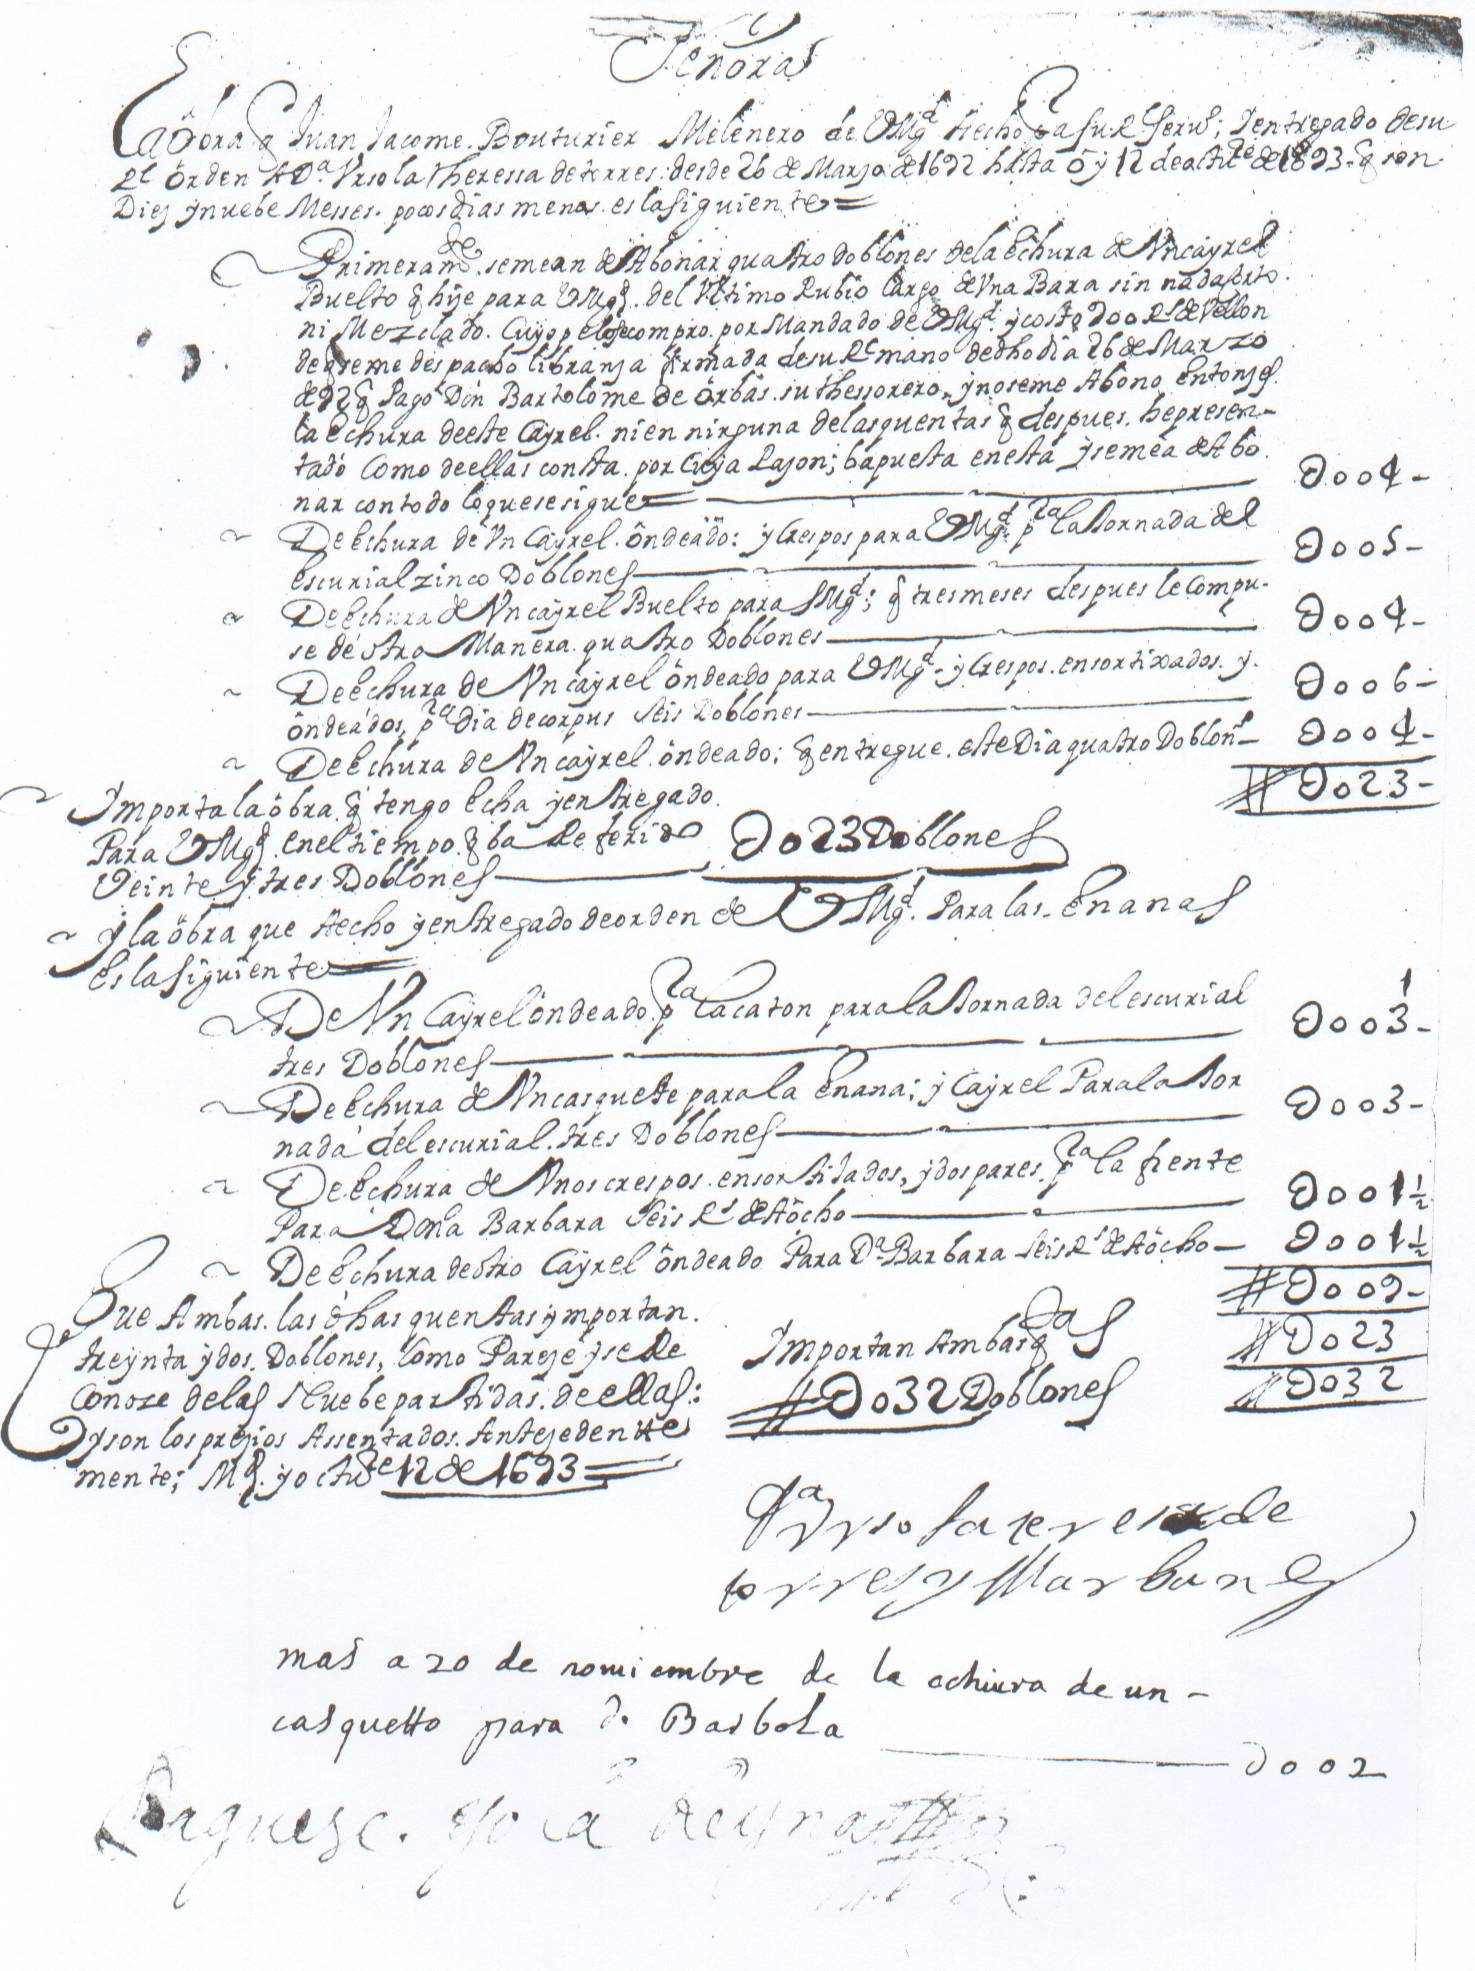 Señora
La obra q Juan Jacome Bouturier Melenero de VMgd Hecho pa su Rl Serus; Ientregado de su
Rl orden A Da Ursola Theressa de torres desde 26 de Marzo de 1692 hasta oy 12 de actue de 1693 q son
Diez y nuebe Messes pocos dias menos es la siguiente
Primeramte se me an de Abonar quatro doblones de la Echura de Un cayrel
Buelto q hize para VMgd del Ultimo Rubio largo de Una Bara sin nada
ni Mezclado. Cuyo pelo se compro por Mandado de VMgd y costo 700 Rs de Vellon
de q se me despacho libranza firmada de su Rl mano de dho dia 26 de Marzo
de 92 q Pago Don Bartolome de Orbas su thessorero, y no se me Abono entonzes
la Echura de este Cayrel ni en ninguna de las quentas q despues he presen-
tado Como de ellas consta por Cuya Razon; ba puesta en esta y se me a de Abo
nar con todo lo que se sigue
D004-
De Echura de Un Cayrel ondeado: y Crespos para VMgd pra la Jornada del
escurial zinco Doblones
D005-
De Echura de Un cayrel Buelto para SMgd; q tres meses despues le Compu-
se de otra Manera quatro Doblones
D004-
De Echura de Un cayrel ondeado para VMgd y Crespos ensortixados y
ondeados, pra dia de corpus Seis Doblones
D006-
De Echura de Un cayrel ondeado; q entregue este Dia quatro Doblons
D004-
Importa la obra q tengo Echa y entregado
# D023-
Para VMgd en el tiempo q ba Referido
Do23 Doblones
Veinte y tres Doblones
y la obra que Hecho y entregado de orden de VMgd Para las Enanas
Es la siguiente
De Un Cayrel ondeado pra la caton para la Jornada del escurial
tres Doblones
D003-
De Echura de Un casquete para la Enana; y Cayrel Para la Jor
nada del escurial tres Doblones
D003-
De Echura de Unos crespos ensortilados, y dos pares pra la frente
Para Doña Barbara Seis Rs de A ocho
D001½
De Echura de otro Cayrel ondeado Para Da Barbara Seis Rs de A ocho
D001½
# D009-
Que Ambas las dhas quentas ymportan
treynta y dos Doblones, Como Pareze y se Re
Conoze de las Nuebe partidas de ellas:
y son los prezios Assentados Antezedente
mente; Md y octue 12 de 1693
Importan Ambas qtas
# Do32 Doblones
# Do23
# Do32
Da Ursola teresa de
torres y Marban
mas a 20 de nouiembre de la echiura de un-
casquetto para d. Barbola
D002
Paguese. yo la Reyna